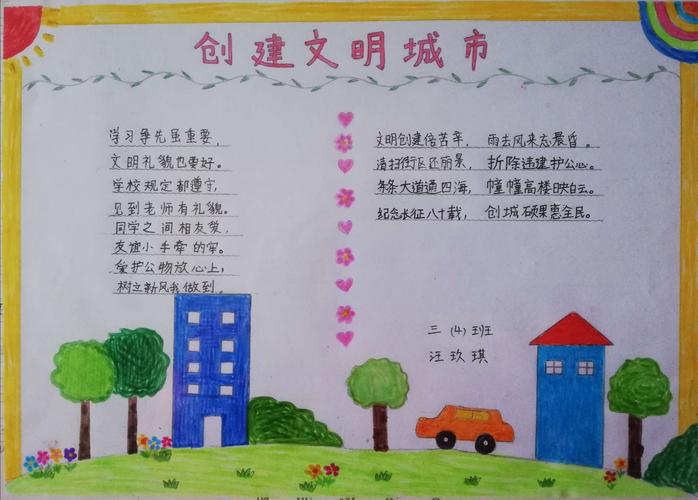 创建文明城市
学习争先虽重要，
文明礼貌也要好。
学校规定都遵守，
见到老师有礼貌。
同学之间相友爱，
友谊小手牵的牢。
爱护公物放心上，
树立新风我做到。
文明创建倍苦辛， 雨去风来忘晨昏。
清扫街区还丽景， 拆除违建护公心。
条条大道通四海， 幢幢高楼映白云。
纪念水征八十载， 创城硕果惠全民。
三（4）班
汪玖琪